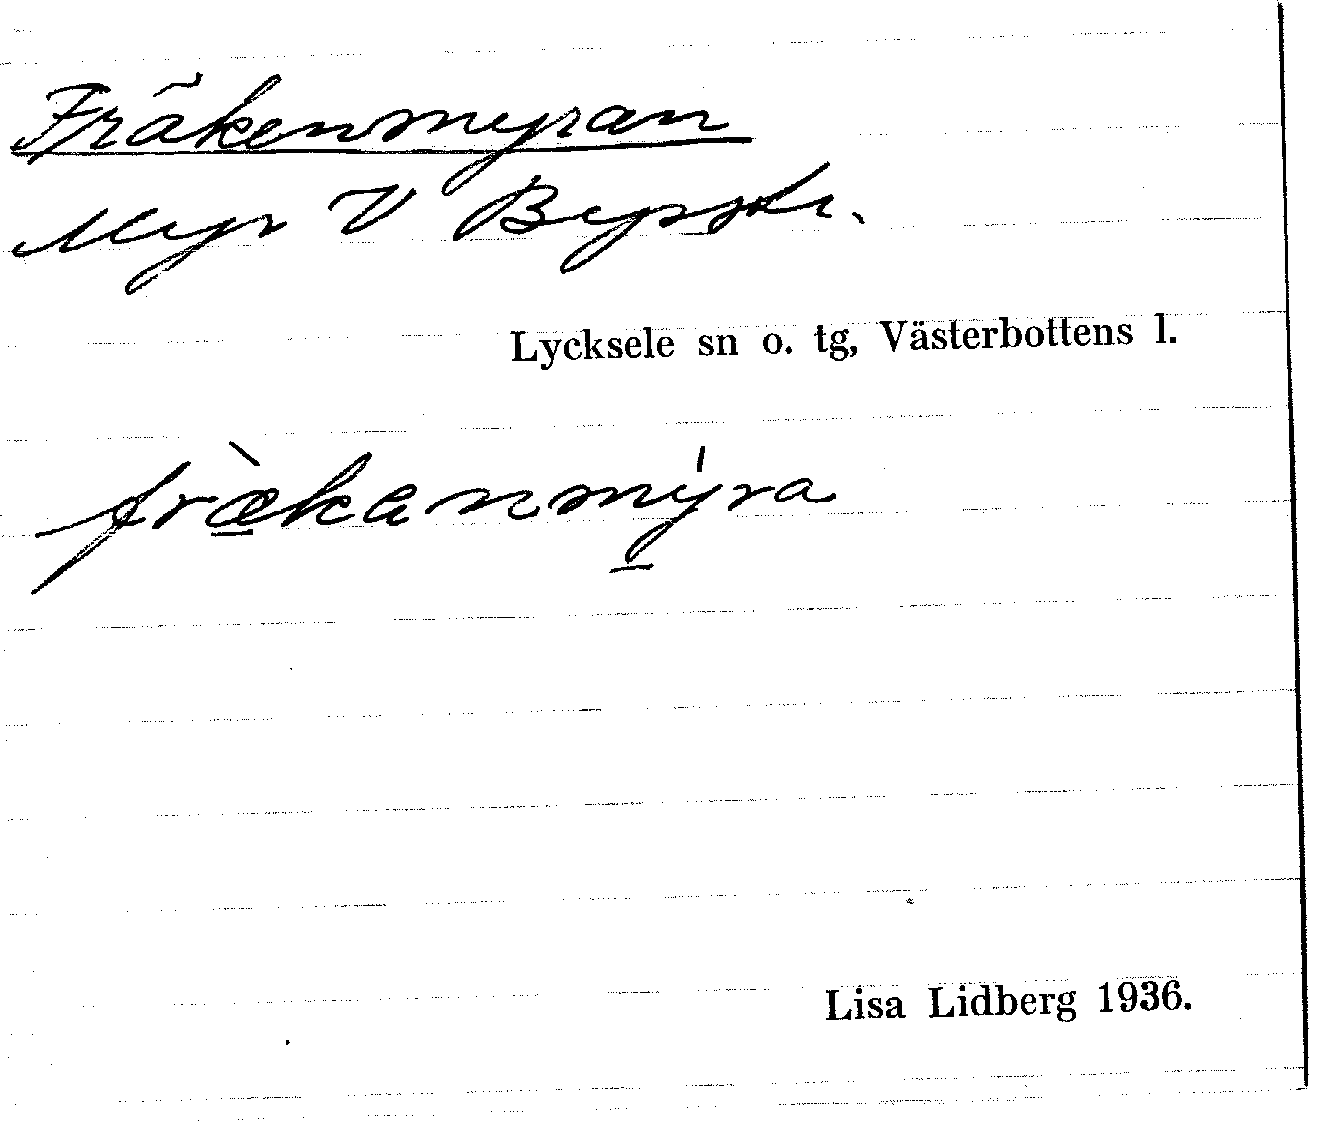 Fräkenmyran
Myr V Bysstr.
Lycksele sn o. tg, Västerbottens l.
fræ̲̀kanmý̲ra
Lisa Lidberg 1936.